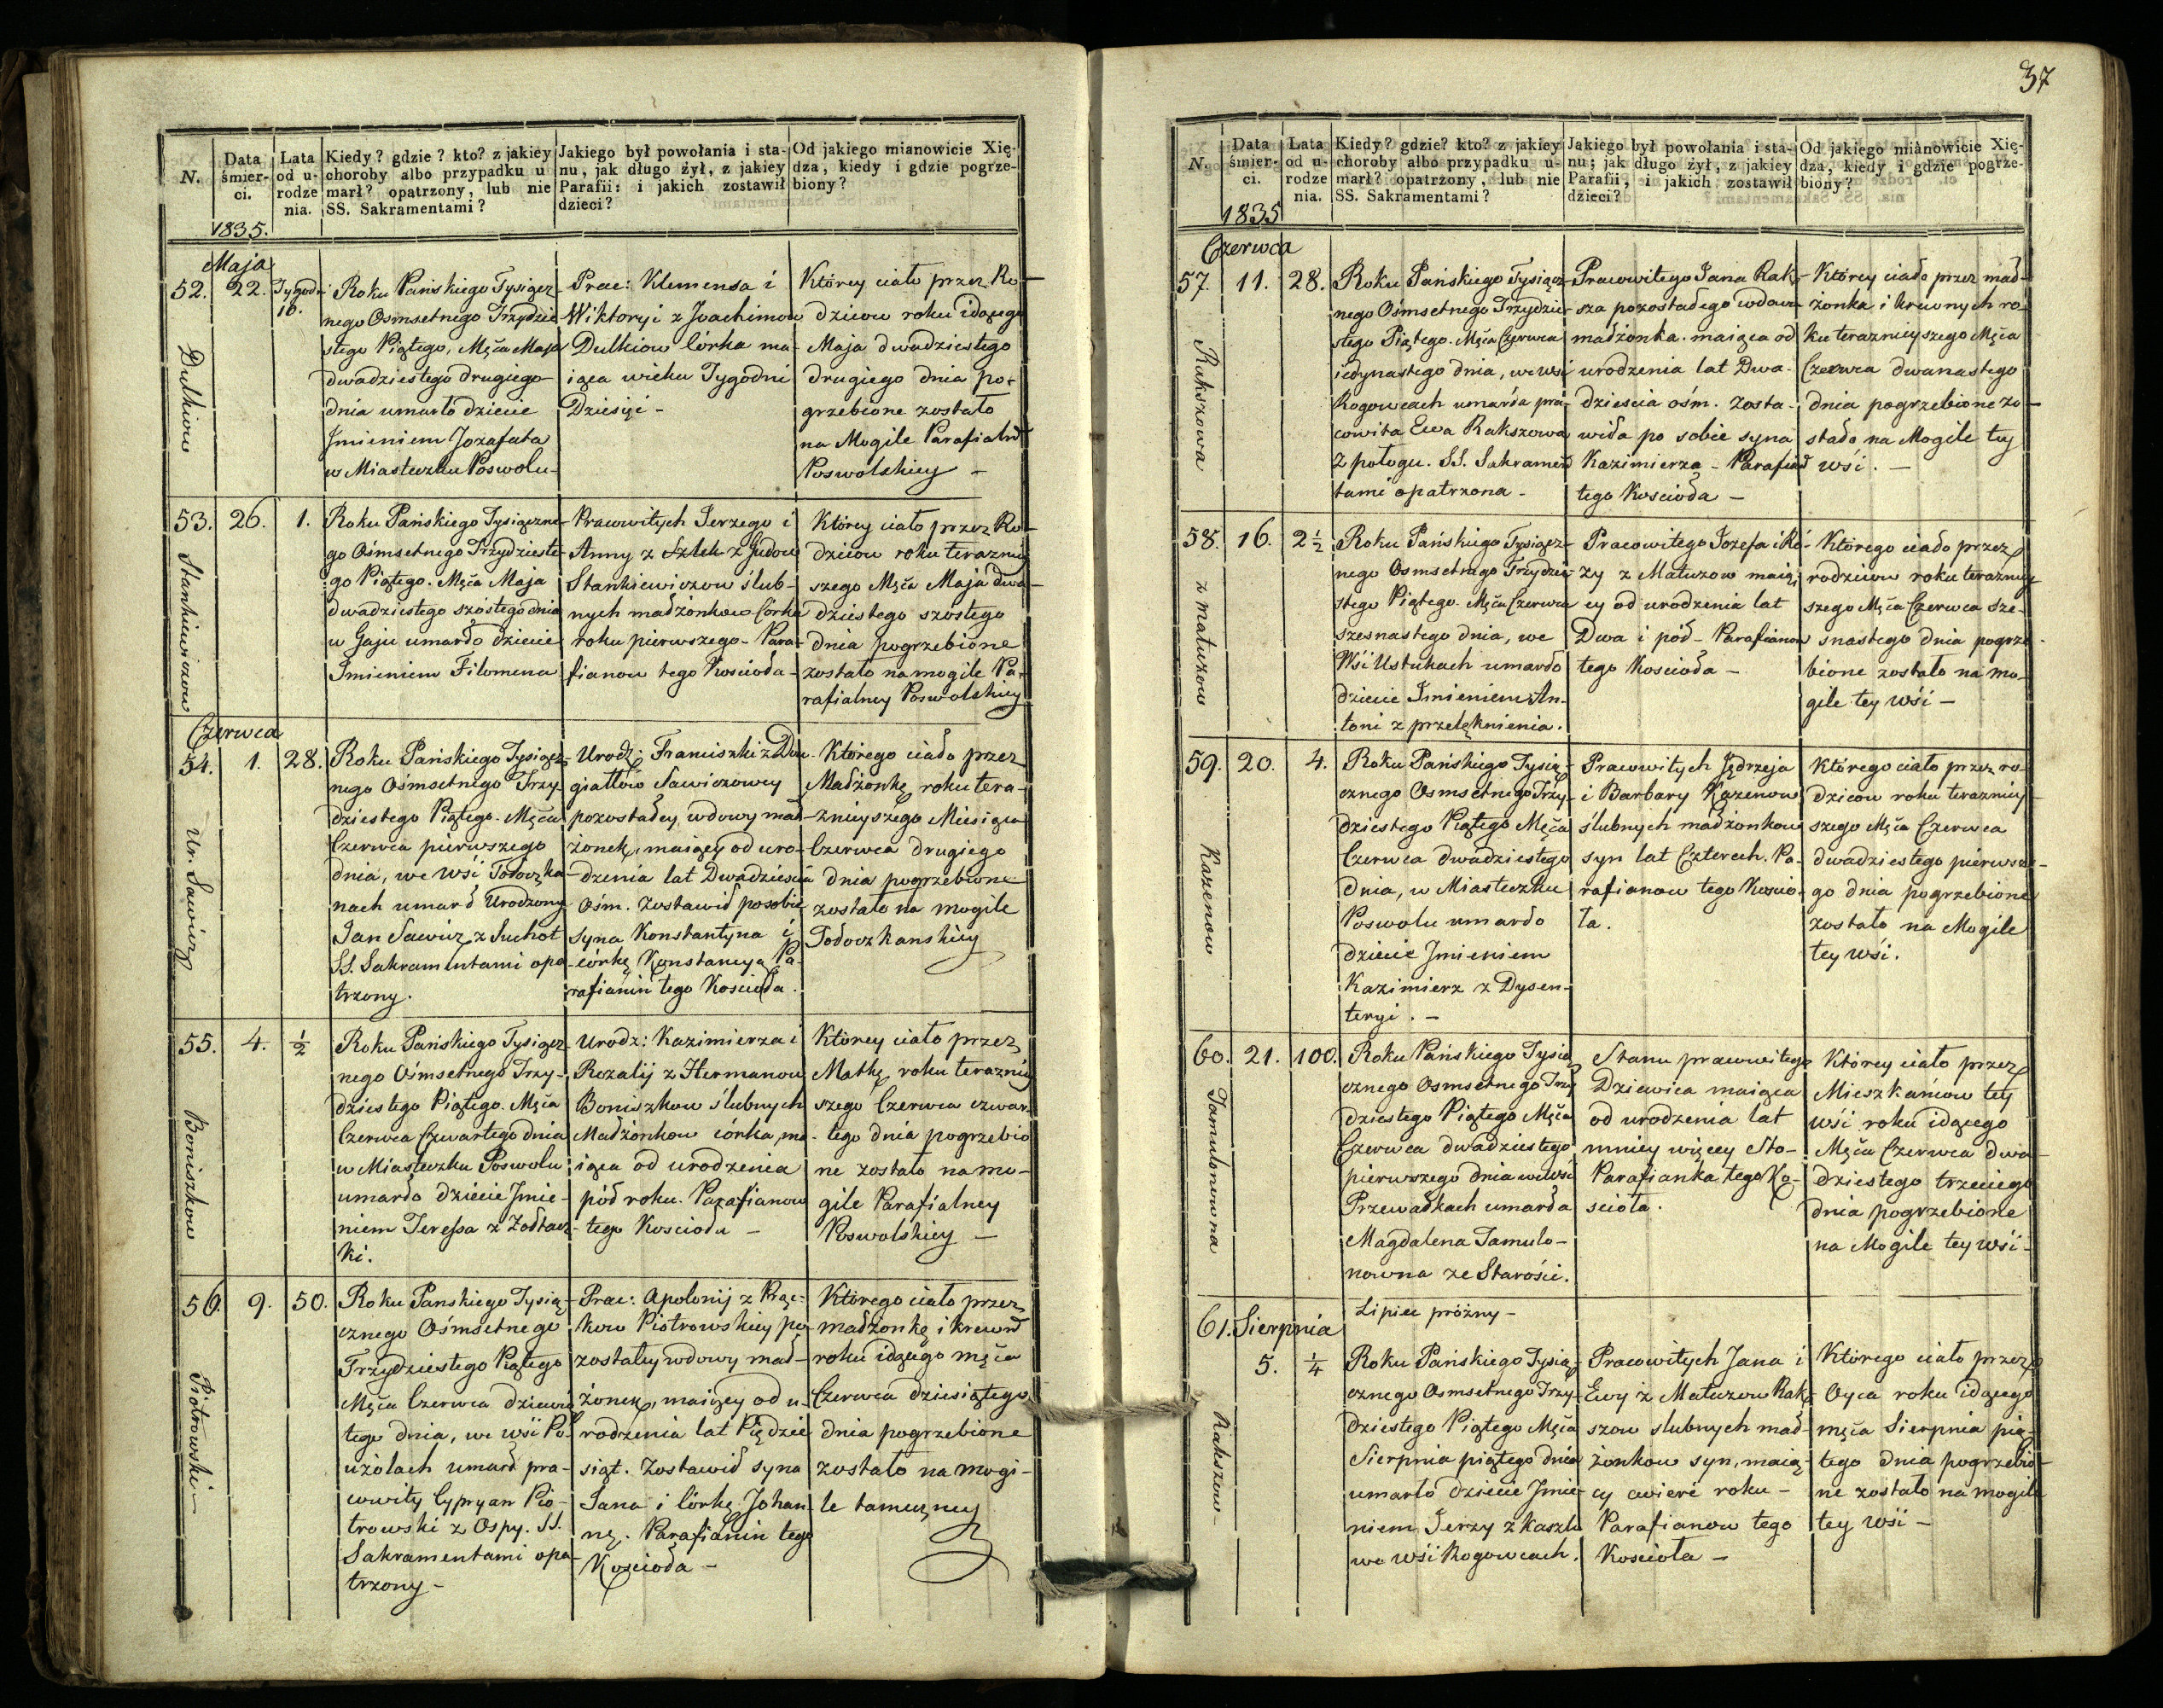 37
N.
Data śmierci.
Lata od urodzenia.
Kiedy? gdzie? kto? z jakiey choroby albo przypadku umarł? opatrzony, lub nie SS. Sakramentami?
Jakiego był powołania i stanu, jak długo żył, z jakiey Parafii: i jakich zostawił dzieci?
Od jakiego mianowicie Xiędza, kiedy i gdzie pogrzebiony?
1835.
Maja
52. 22. Tygodn: 10.
Dulkiow
Roku Pańskiego Tysiącz-
nego Osmsetnego Trzydzie
stego Piątego, Mca Maja
dwadziestego drugiego
dnia umarło dziecie
Imieniem Jozafata
w Miasteczku Poswolu-
Prac: Klemensa i
Wiktoryi z Joachimow
Dulkiow Córka ma-
iąca wieku Tygodni
Dziesięć -
Którey ciało przez Ro-
dzicow roku idącego
Maja dwadziestego
drugiego dnia po-
grzebione zostało
na Mogile Parafialn
Poswolskiey -
53. 26. 1.
Stankiewiczow
Roku Pańskiego Tysiączne-
go Ośmsetnego Trzydzieste-
go Piątego. Mca Maja
dwadziestego szóstego dnia
w Gaju umarło dziecie
Imieniem Filomena
Pracowitych Jerzego i
Anny z Szlek z Judow
Stankiewiczow ślub-
nych małżonkow Córka
roku pierwszego - Para-
fianow tego Kościoła -
Którey ciało przez Ro-
dzicow roku terazniey
szego Mca Maja dwa-
dziestego szóstego
dnia pogrzebione
zostało na mogile Pa-
rafialney Poswolskiey
Czerwca
54. 1. 28.
Ur: Sawicz
Roku Pańskiego Tysiącz-
nego Ośmsetnego Trzy-
dziestego Piątego. Mca
Czerwca pierwszego
dnia, we Wśi Tołoczka-
nach umarł Urodzony
Jan Sawicz z Suchot
SS. Sakramentami opa-
trzony.
Urodz: Franciszki z Dow-
giałłów Sawiczowey
pozostałey wdowy mał-
żonek, maiący od uro-
dzenia lat Dwadzieścia
Ośm. Zostawił po sobie
syna Konstantyna i
córkę Konstancyą Pa-
rafianin tego Kościoła.
Którego ciało przez
Małżonkę roku tera-
znieyszego Miesiąca
Czerwca drugiego
dnia pogrzebione
zostało na mogile
Tołoczkanskiey
55. 4. ½
Boniszkow
Roku Pańskiego Tysiącz-
nego Ośmsetnego Trzy-
dziestego Piątego. Mca
Czerwca Czwartego dnia
w Miasteczku Poswolu
umarło dziecie Imie-
niem Teressa z Zołtacz-
ki.
Urodz: Kazimierza i
Rozalij z Hermanow
Boniszkow ślubnych
Małżonkow córka, ma-
iąca od urodzenia
pół roku. Parafianow
tego Kościoła -
Którey ciało przez
Matkę roku teraznie
szego Czerwca czwar-
tego dnia pogrzebio
ne zostało na mo-
gile Parafialney
Poswolskiey -
56. 9. 50.
Piotrowski -
Roku Panskiego Tysią-
cznego Ośmsetnego
Trzydziestego Piątego
Mca Czerwca dziewią
tego dnia, we wśi Po-
użolach umarł pra-
cowity Cypryan Pio-
trowski z Ospy. SS.
Sakramentami opa-
trzony -
Prac: Apolonij z
Piotrowskiey po-
zostałey wdowy mał-
żonek, maiący od u-
rodzenia lat Pięćdzie
siąt. Zostawił syna
Jana i Córkę Johan-
nę. Parafianin tego
Kościoła -
Którego ciało przez
małżonkę i krewn
roku idącego mca
Czerwca dziesiątego
dnia pogrzebione
zostało na mogi-
le tameczney
N.
Data śmierci.
Lata od urodzenia.
Kiedy? gdzie? kto? z jakiey choroby albo przypadku umarł? opatrzony, lub nie SS. Sakramentami?
Jakiego był powołania i stanu; jak długo żył, z jakiey Parafii, i jakich zostawił dzieci?
Od jakiego mianowicie Xiędza, kiedy i gdzie pogrzebiony?
1835
Czerwca
57. 11. 28.
Rakszowa
Roku Pańskiego Tysiącz-
nego Ośmsetnego Trzydzie-
stego Piątego. Mca Czerwca
iedynastego dnia, we wsi
Rogowcach umarła pra-
cowita Ewa Rakszowa
z połogu. SS. Sakramen
tami opatrzona -
Pracowitego Jana Rak-
sza pozostałego wdow-
małżonka. maiąca od
urodzenia lat Dwa-
dzieścia ośm. Zosta-
wiła po sobie syna
Kazimierza - Parafian
tego Kościoła -
Którey ciało przez mał-
żonka i krewnych ro-
ku teraznieyszego Mca
Czerwca dwanastego
dnia pogrzebione zo-
stało na Mogile tey
wśi. -
58. 16. 2½
z Matuzow
Roku Pańskiego Tysiącz-
nego Osmsetnego Trzydzie-
stego Piątego. Mca Czerwca
szesnastego dnia, we
Wśi Ustukach umarło
dziecie Imieniem An-
toni z przelęknienia.
Pracowitego Jozefa i Ró-
ży z Matuzow maią-
cy od urodzenia lat
Dwa i pół - Parafianow
tego Kościoła -
Którego ciało przez
rodzicow roku teraznie
szego Mca Czerwca sze-
snastego dnia pogrze-
bione zostało na mo-
gile tey Wśi -
59. 20. 4.
Kazenow
Roku Pańskiego Tysią-
cznego Osmsetnego Trzy-
dziestego Piątego Mca
Czerwca dwadziestego
dnia, w Miasteczku
Poswolu umarło
dziecie Imieniem
Kazimierz z Dysen-
teryi. -
Pracowitych Jędrzeja
i Barbary Kazenow
ślubnych małżonkow
syn lat Czterech. Pa-
rafianow tego Koscio-
ła.
Którego ciało przez ro-
dzicow roku terazniey-
szego Mca Czerwca
dwadziestego pierwsze-
go dnia pogrzebione
zostało na Mogile
tey wśi.
60. 21. 100.
Tamulonowna
Roku Pańskiego Tysią
cznego Osmsetnego Trzy
dziestego Piątego Mca
Czerwca dwadziestego
pierwszego dnia we wśi
Przewałkach umarła
Magdalena Tamulo-
nowna ze Starości.
Stanu pracowitego
Dziewica maiąca
od urodzenia lat
mniey więcey Sto -
Parafianka tego Ko-
ścioła.
Którey ciało przez
Mieszkańcow tey
wśi roku idącego
Mca Czerwca dwa-
dziestego trzeciego
dnia pogrzebione
na Mogile tey wśi -
Lipiec próżny -
61. Sierpnia
5. ¼
Rakszow -
Roku Pańskiego Tysią-
cznego Osmsetnego Trzy-
dziestego Piątego Mca
Sierpnia piątego dnia
umarło dziecie Imie-
niem Jerzy z kaszlu
we wśi Rogowcach.
Pracowitych Jana i
Ewy z Matuzow Rak-
szow slubnych mał-
żonkow syn, maią-
cy cwierć roku -
Parafianow tego
Kościoła -
Którego ciało przez
Oyca roku idącego
mca Sierpnia pią-
tego dnia pogrzebio-
ne zostało na mogile
tey Wśi -